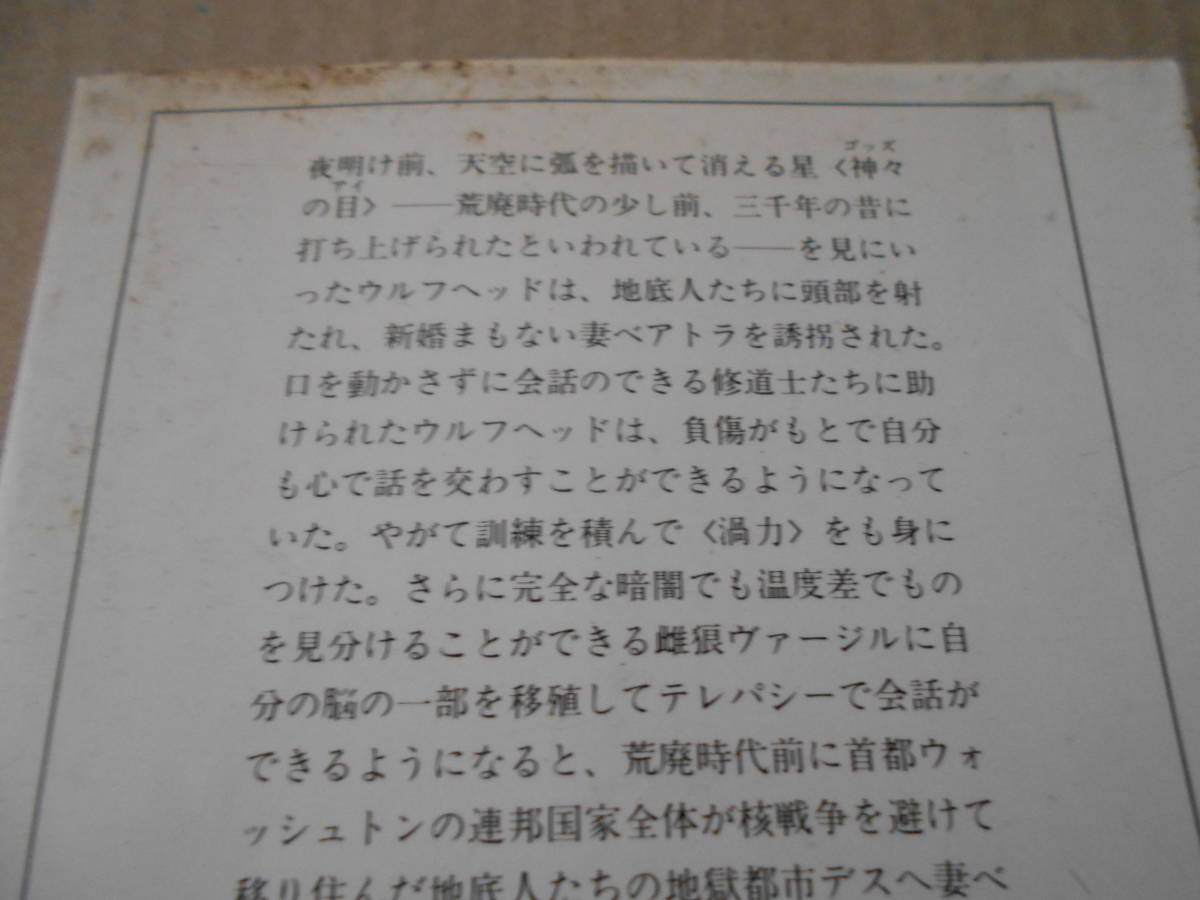 夜明け前、天空に弧を描いて消える星〈神々
ゴッズ
の目〉――荒廃時代の少し前、三千年の昔に
アイ
打ち上げられたといわれている――を見にい
ったウルフヘッドは、地底人たちに頭部を射
たれ、新婚まもない妻ベアトラを誘拐された。
口を動かさずに会話のできる修道士たちに助
けられたウルフヘッドは、負傷がもとで自分
も心で話を交わすことができるようになって
いた。やがて訓練を積んで〈渦力〉をも身に
つけた。さらに完全な暗闇でも温度差でもの
を見分けることができる雌狼ヴァージルに自
分の脳の一部を移殖してテレパシーで会話が
できるようになると、荒廃時代前に首都ウォ
ッシュトンの連邦国家全体が核戦争を避けて
移り住んだ地底人たちの地獄都市デスへ妻ベ